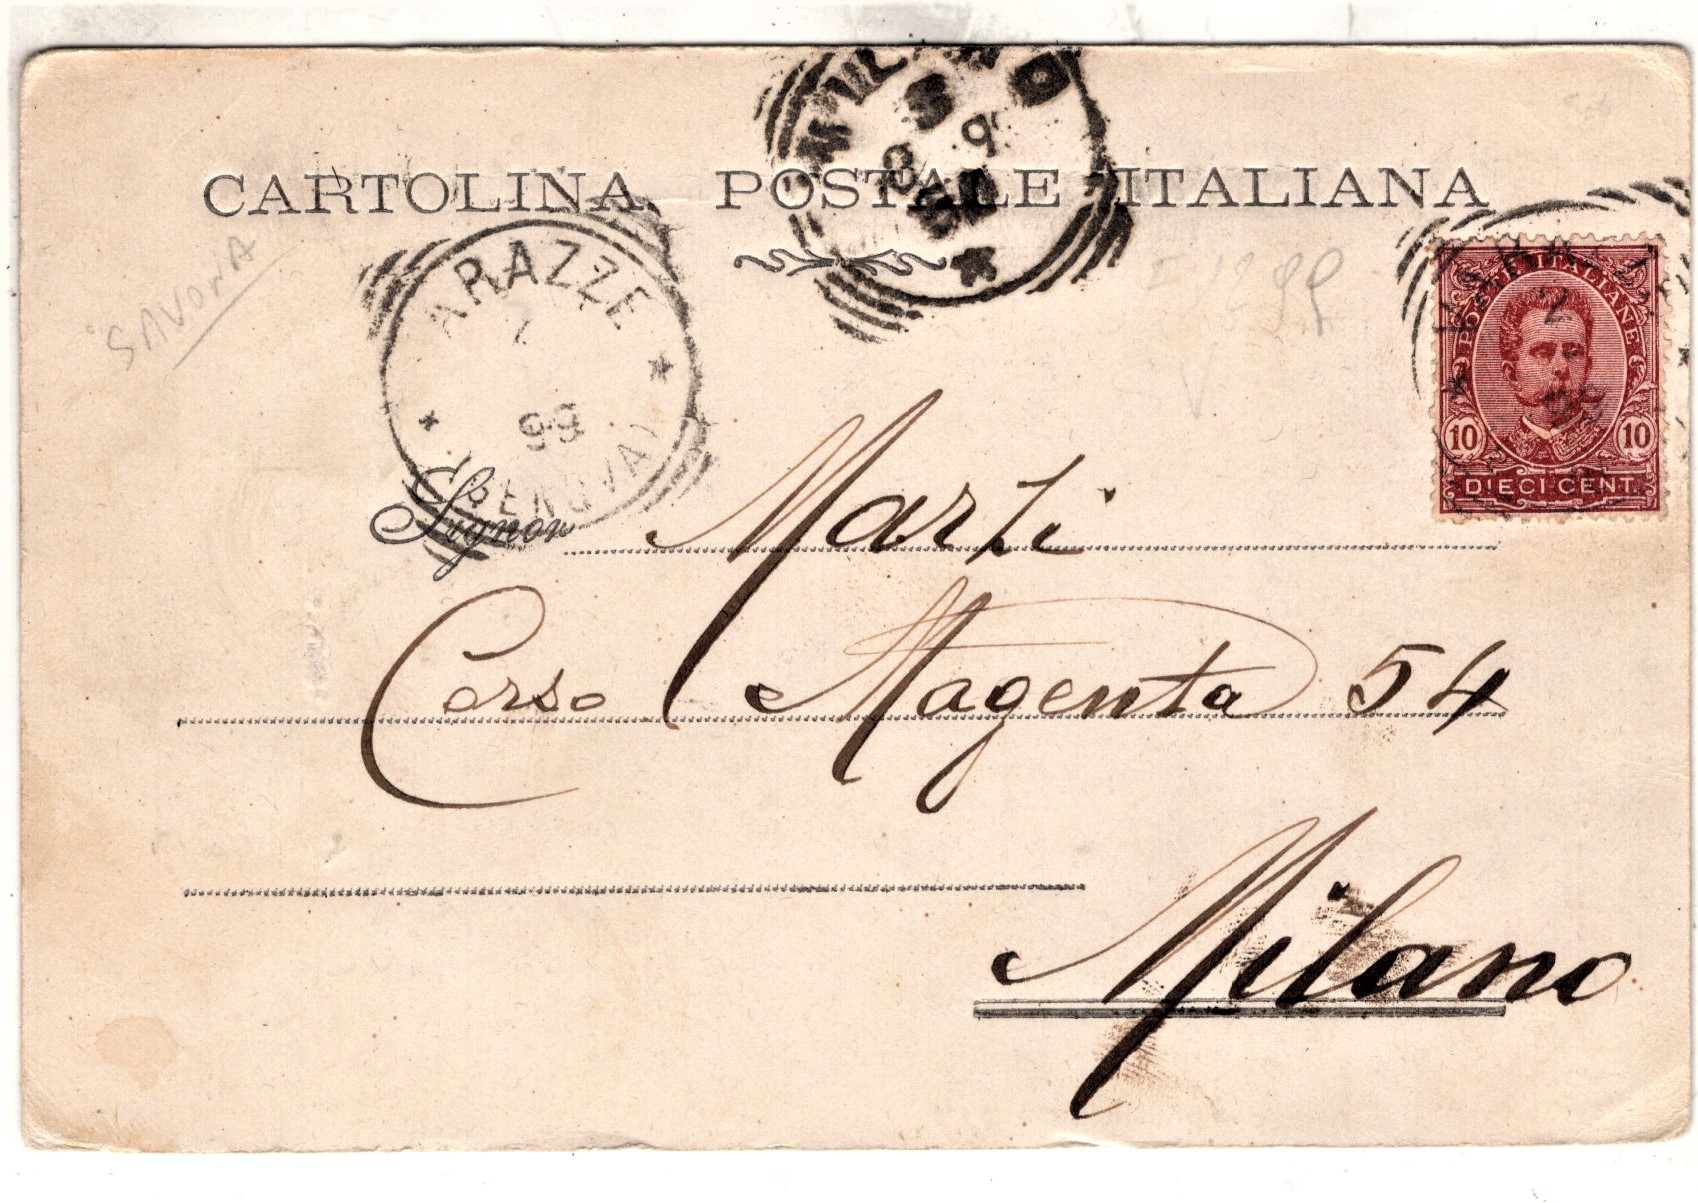 CARTOLINA POSTALE ITALIANA
SAVONA
ARAZZE
99
(GENOVA)
MILANO
POSTE ITALIANE
10 10
DIECI CENT.
Signor Marzi
Corso Magenta 54
Milano